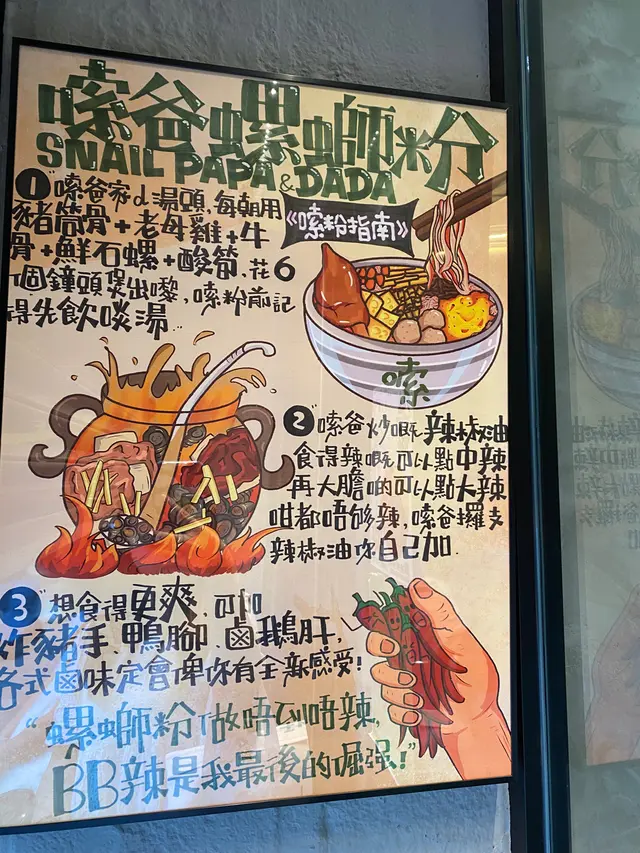 嗦爸螺螄粉
SNAIL PAPA & DADA
《嗦粉指南》
1 嗦爸家d湯頭,每朝用
豬筒骨+老母雞+牛
骨+鮮石螺+酸筍,花6
個鐘頭煲出嚟,嗦粉前記
得先飲啖湯..
嗦
2 嗦爸炒嘅辣椒油
食得辣嘅可以點中辣
再大膽啲可以點大辣
咁都唔够辣,嗦爸攞支
辣椒油你自己加.
3 想食得更爽,可加
炸豬手、鴨腳、鹵鵝肝,
各式鹵味定會俾你有全新感受!
“螺螄粉做唔到唔辣,
BB辣是我最後的倔强!”